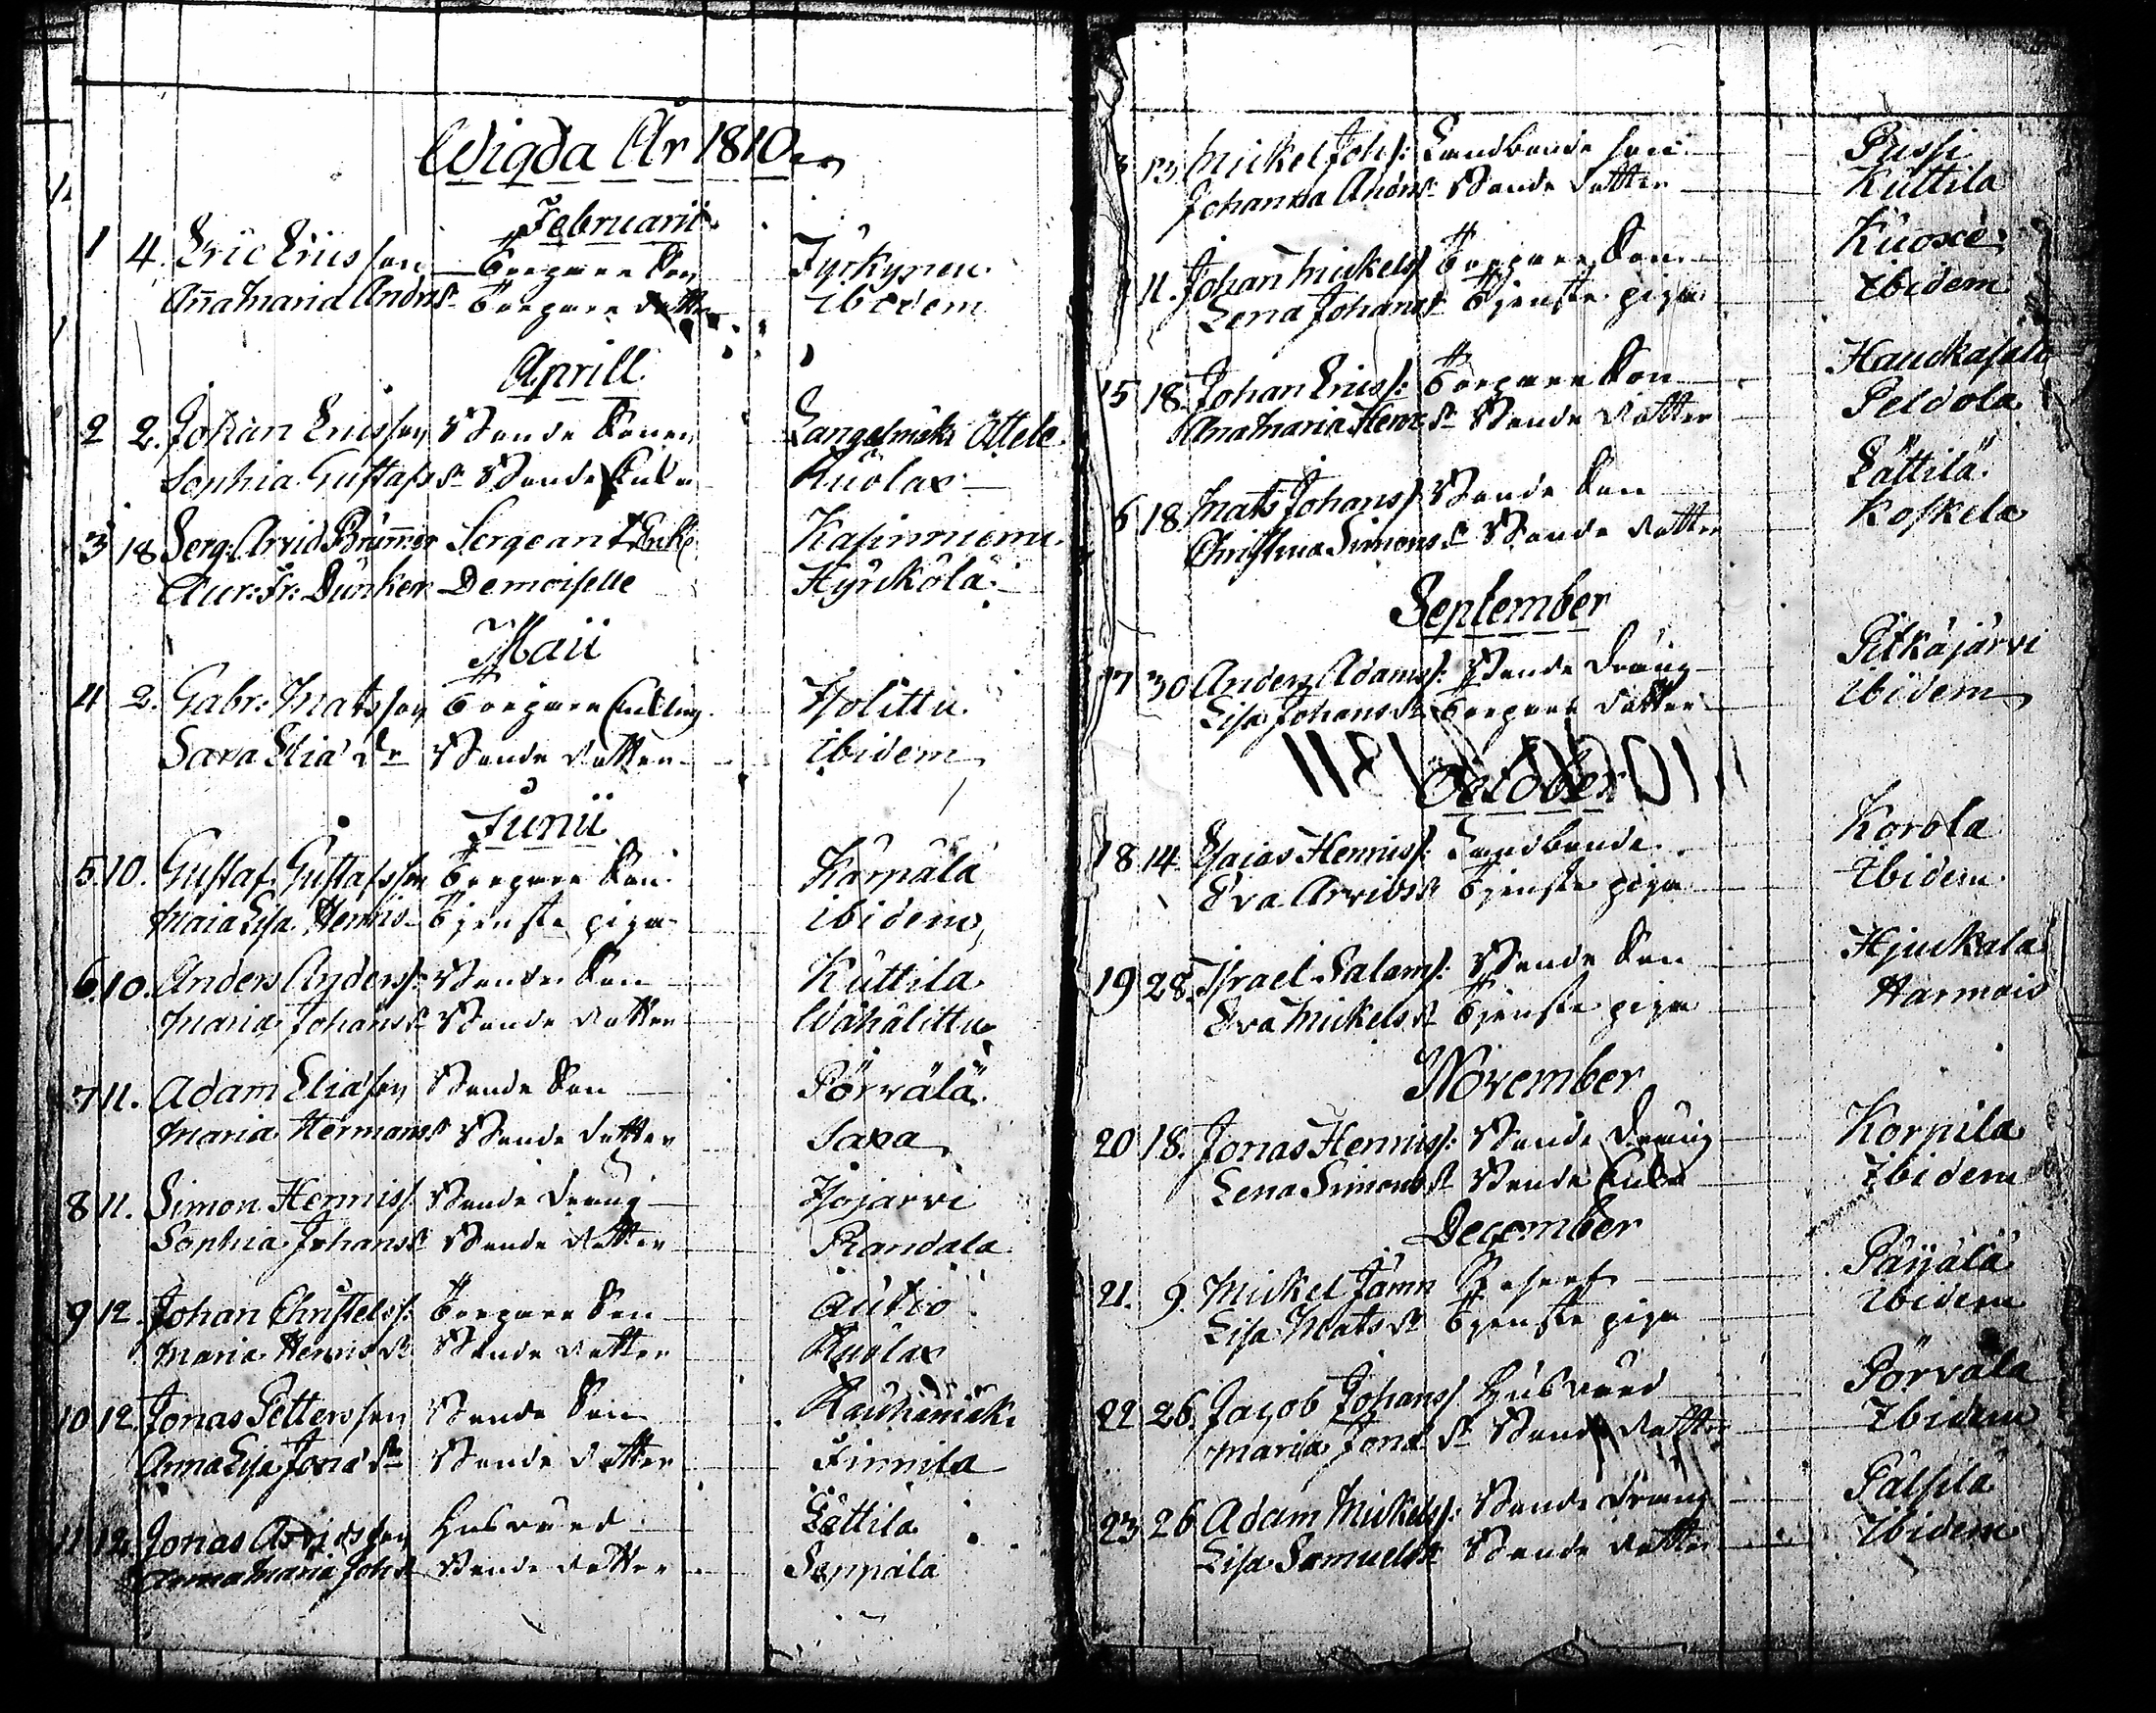 Wigda År 1810
Februarii
1 4. Eric Ericsson Torpare Son Jyrkynen
Anna Maria Andrs dr Torpare dotter Ibidem
Aprill
2 2. Johan Ericsson Bonde Sonen Längelmäki Attele
Sophia Gustafs dr Bonde Enka Kuolax
3 18 Serg: Arvid Brummer Sergeant Kasinniemi
Aur: Fr: Dunker Demoiselle Hyrckölä
Maii
4 2. Gabr: Matsson Torpare Enkling Isolittu
Sara Elia dr Bonde dotter ibidem
Junii
5. 10. Gustaf Gustafsson Torpare Son Kärpälä
Maria Lisa Henris Tjenste piga ibidem
6. 10. Anders Anderss: Bonde Son Kuttila
Maria Johans dr Bonde dotter Wähälittu
7 11. Adam Eliasson Bonde Son Pörvälä
Maria Hermans dr Bonde dotter Saxa
8 11. Simon Henriss: Bonde dräng Isojärvi
Sophia Johans dr Bonde dotter Randala
9 12. Johan Christelss: Torpare Son Autio
Maria Henris dr Bonde dotter Kuolax
10 12. Jonas Pettersson Bonde Son Rauhamäki
Anna Lisa Jona dr Bonde dotter Finnilä
11 12. Jonas Arvidsson Husvärd Lättilä
Anna Maria Joh dr Bonde dotter Seppälä
3 13. Mickel Johs: Landbonde son Pussi
Johanna Andrs dr Bonde dotter Kuttila
11. Johan Mickelss: Torpare Son Kuoxe
Lena Johans dr Tjenste piga Ibidem
15 18. Johan Ericss: Torpare Son Hauckasalo
Anna Maria Henr dr Bonde dotter Peldola
6 18. Mats Johanss: Bonde Son Lättilä
Christina Simons dr Bonde dotter Koskela
September
17 30 Anders Adamss: Bonde dräng Pitkäjärvi
Lisa Johans dr Torpare dotter Ibidem
October
18 14 Esaias Henriss: Landbonde Korola
Eva Arvids dr Tjenste piga Ibidem
19 28. Israel Salams: Bonde Son Hjuckala
Eva Mickels dr Tjenste piga Harmois
November
20 18. Jonas Henriss: Bonde Dräng Korpila
Lena Simons dr Bonde Enka Ibidem
December
21. 9. Mickel Jämn Päijälä
Lisa Mats dr Tjenste piga Ibidem
22 26. Jacob Johanss: Husvärd Pörvälä
Maria Jona dr Bonde dotter Ibidem
23 26 Adam Mickelss: Bonde dräng Pälsilä
Lisa Samuels dr Bonde dotter Ibidem